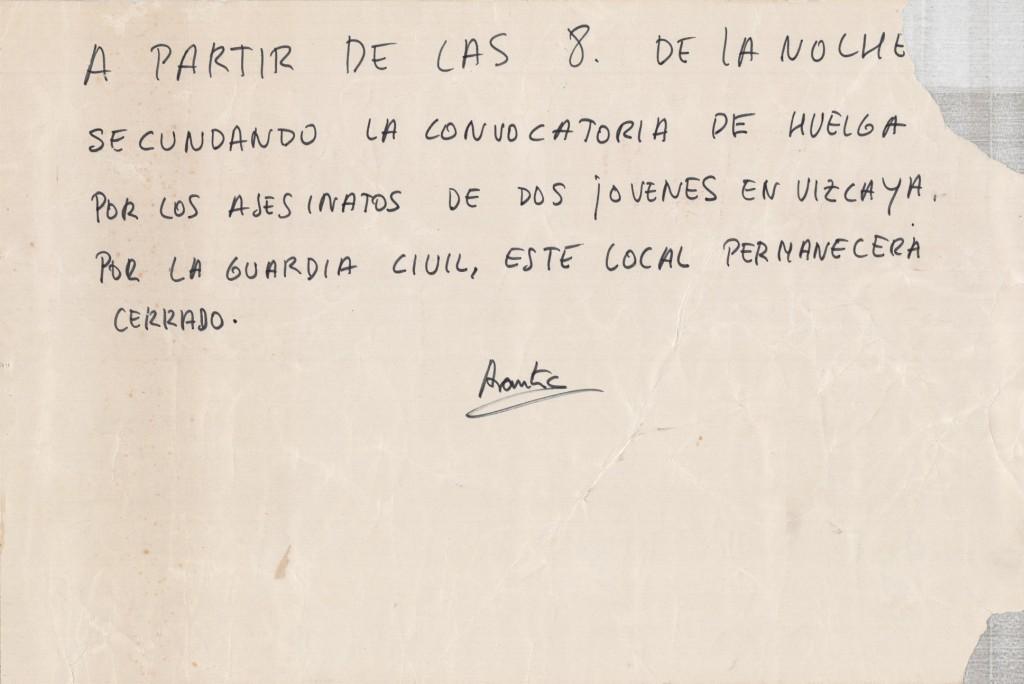 A PARTIR DE LAS 8. DE LA NOCHE
SECUNDANDO LA CONVOCATORIA DE HUELGA
POR LOS ASESINATOS DE DOS jOVENES EN VIZCAYA.
POR LA GUARDIA CIVIL, ESTE LOCAL PERMANECERÁ
CERRADO.